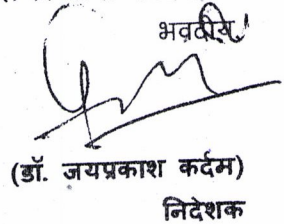 भवदीय
(डॉ. जयप्रकाश कर्दम)
निदेशक